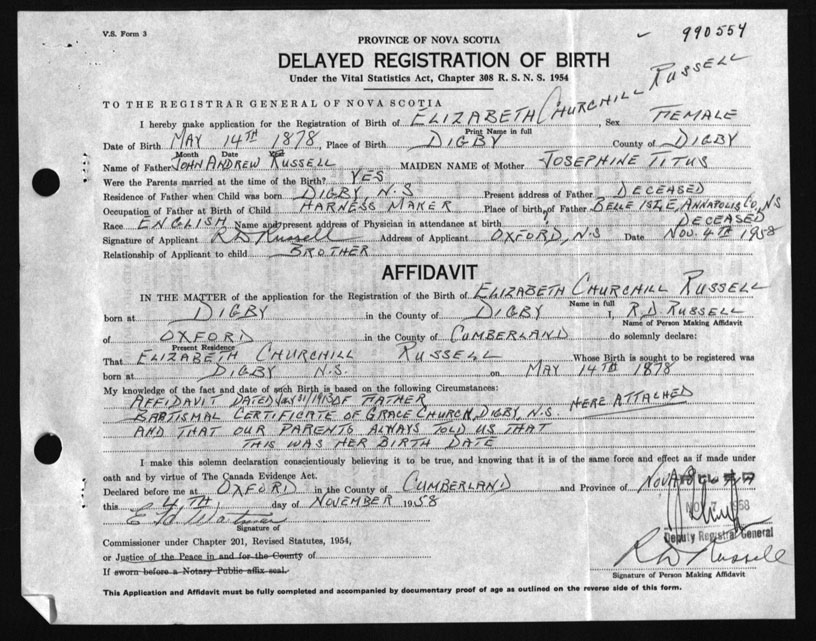 V.S. Form 3
990554
PROVINCE OF NOVA SCOTIA
DELAYED REGISTRATION OF BIRTH
Under the Vital Statistics Act, Chapter 308 R. S. N. S. 1954
TO THE REGISTRAR GENERAL OF NOVA SCOTIA
I hereby make application for the Registration of Birth of ELIZABETH CHURCHILL RUSSELL, Sex FEMALE
Print Name in full
Date of Birth MAY 14TH 1878, Place of Birth DIGBY County of DIGBY
Month Date Year
Name of Father JOHN ANDREW RUSSELL MAIDEN NAME of Mother JOSEPHINE TITUS
Were the Parents married at the time of the Birth? YES
Residence of Father when Child was born DIGBY, N.S Present address of Father DECEASED
Occupation of Father at Birth of Child HARNESS MAKER Place of birth of Father BELLE ISLE, ANNAPOLIS CO, NS
Race ENGLISH Name and present address of Physician in attendance at birth DECEASED
Signature of Applicant R D Russell Address of Applicant OXFORD, N.S Date NOV. 4TH 1958
Relationship of Applicant to child BROTHER
AFFIDAVIT
IN THE MATTER of the application for the Registration of the Birth of ELIZABETH CHURCHILL RUSSELL
Name in full
born at DIGBY in the County of DIGBY I, R.D. RUSSELL
Name of Person Making Affidavit
of OXFORD in the County of CUMBERLAND do solemnly declare:
Present Residence
That ELIZABETH CHURCHILL RUSSELL Whose Birth is sought to be registered was
born at DIGBY N.S. on MAY 14TH 1878
My knowledge of the fact and date of such Birth is based on the following Circumstances:
AFFIDAVIT DATED 31/1913 OF FATHER
BAPTISMAL CERTIFICATE OF GRACE CHURCH, DIGBY, N.S. HERE ATTACHED
AND THAT OUR PARENTS ALWAYS TOLD US THAT
THIS WAS HER BIRTH DATE
I make this solemn declaration conscientiously believing it to be true, and knowing that it is of the same force and effect as if made under
oath and by virtue of The Canada Evidence Act.
Declared before me at OXFORD in the County of CUMBERLAND and Province of NOVA
this 4TH day of NOVEMBER 1958
NO 1958
Signature of
Deputy Registrar General
Commissioner under Chapter 201, Revised Statutes, 1954,
or Justice of the Peace in and for the County of
R D Russell
If sworn before a Notary Public affix seal.
Signature of Person Making Affidavit
This Application and Affidavit must be fully completed and accompanied by documentary proof of age as outlined on the reverse side of this form.